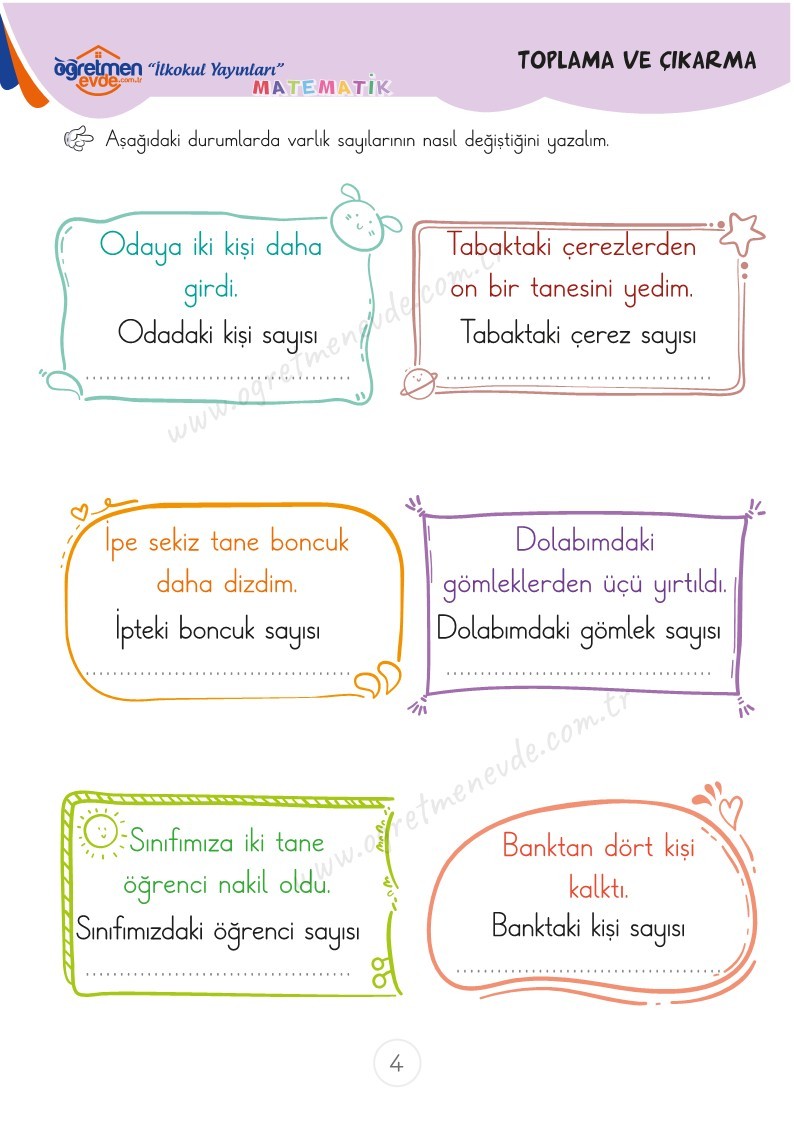 öğretmen
evde.com.tr
“İlkokul Yayınları”
MATEMATİK
TOPLAMA VE ÇIKARMA
Aşağıdaki durumlarda varlık sayılarının nasıl değiştiğini yazalım.
Odaya iki kişi daha
girdi.
Odadaki kişi sayısı
Tabaktaki çerezlerden
on bir tanesini yedim.
Tabaktaki çerez sayısı
www.ogretmenevde.com.tr
İpe sekiz tane boncuk
daha dizdim.
İpteki boncuk sayısı
Dolabımdaki
gömleklerden üçü yırtıldı.
Dolabımdaki gömlek sayısı
www.ogretmenevde.com.tr
Sınıfımıza iki tane
öğrenci nakil oldu.
Sınıfımızdaki öğrenci sayısı
Banktan dört kişi
kalktı.
Banktaki kişi sayısı
4